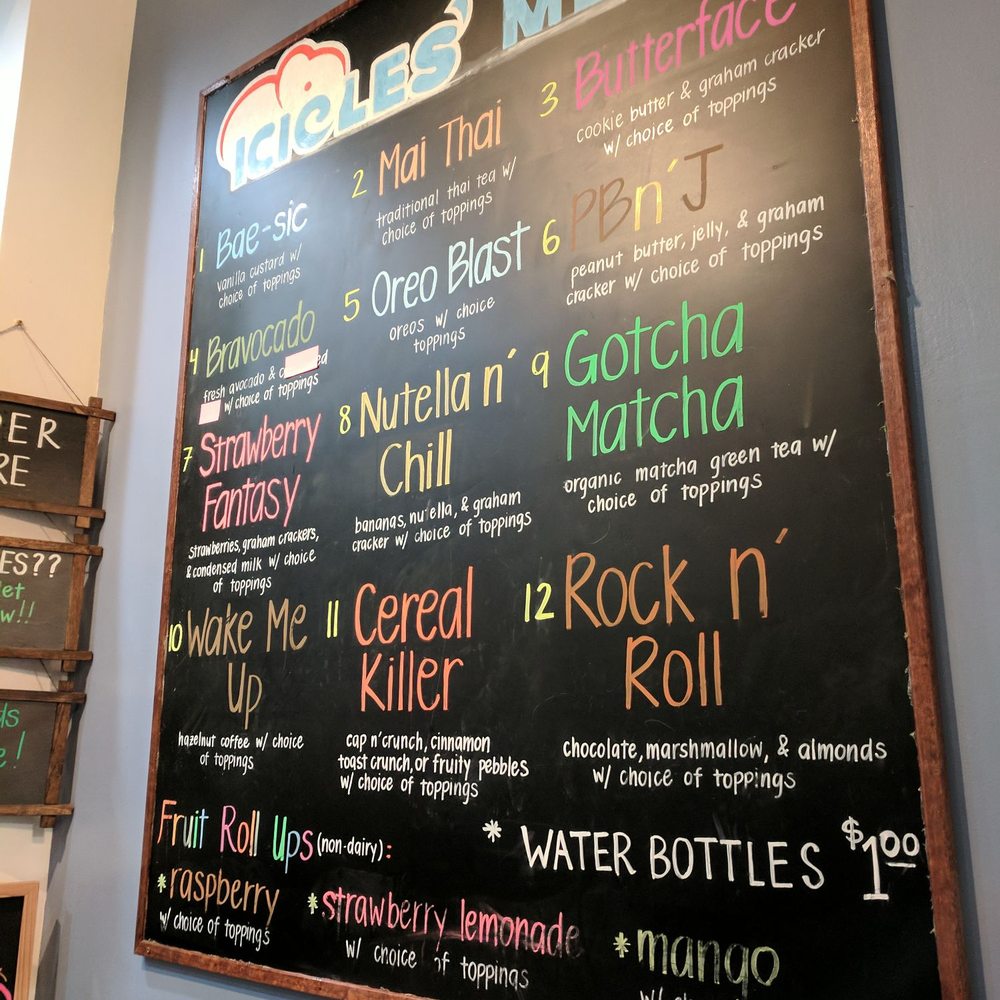 ICICLES'
1 Bae-sic
vanilla custard w/
choice of toppings
2 Mai Thai
traditional thai tea w/
choice of toppings
3 Butterface
cookie butter & graham cracker
w/ choice of toppings
4 Bravocado
fresh avocado &
w/ choice of toppings
5 Oreo Blast
oreos w/ choice
toppings
6 PBn' J
peanut butter, jelly, & graham
cracker w/ choice of toppings
7 Strawberry
Fantasy
strawberries, graham crackers,
& condensed milk w/ choice
of toppings
8 Nutella n'
Chill
bananas, nu ella, & graham
cracker w/ choice of toppings
9 Gotcha
Matcha
organic matcha green tea w/
choice of toppings
10 Wake Me
Up
hazelnut coffee w/ choice
of toppings
11 Cereal
Killer
cap n'crunch, cinnamon
toast crunch, or fruity pebbles
w/ choice of toppings
12 Rock n'
Roll
chocolate, marshmallow, & almonds
w/ choice of toppings
Fruit Roll Ups (non-dairy):
* raspberry
w/ choice of toppings
* strawberry lemonade
w/ choice of toppings
* mango
* WATER BOTTLES $1.00
RE
ES??